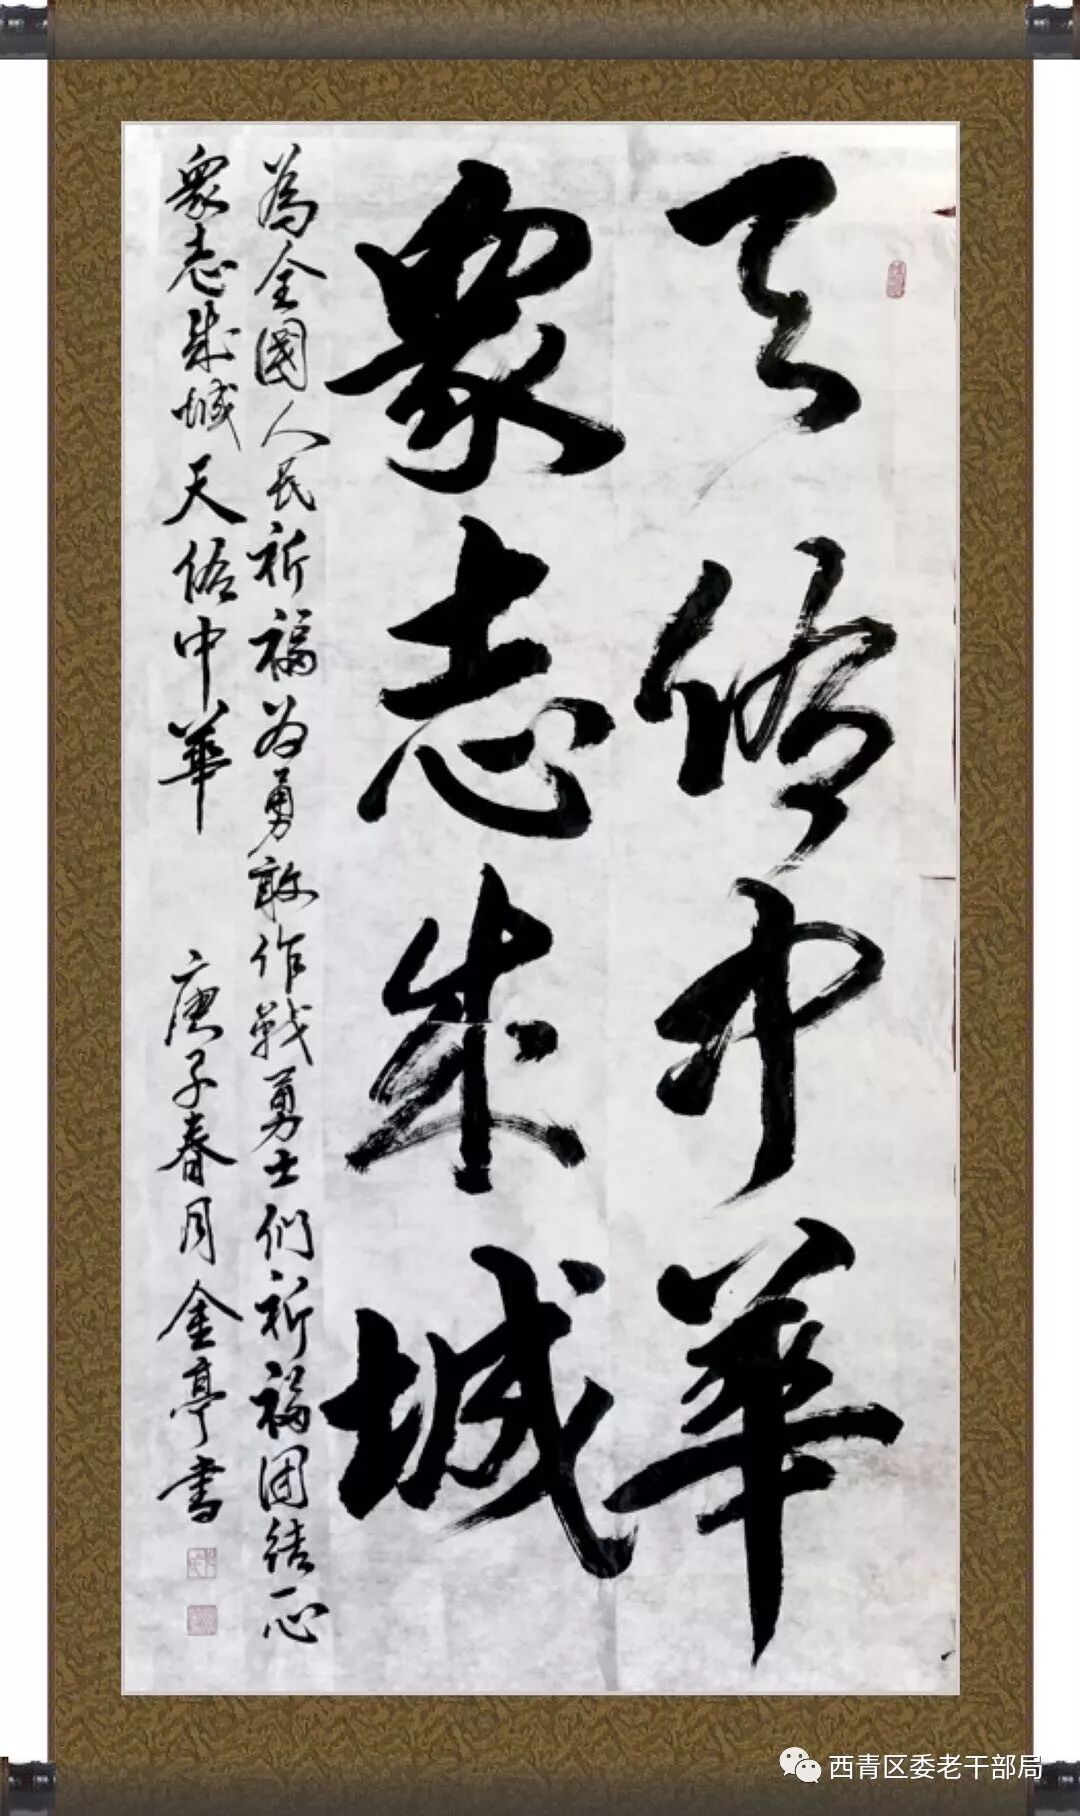 天佑中華
衆志成城
為全國人民祈福为勇敢作戰勇士们祈福团结一心
衆志成城天佑中華 庚子春月金亭书
西青区委老干部局